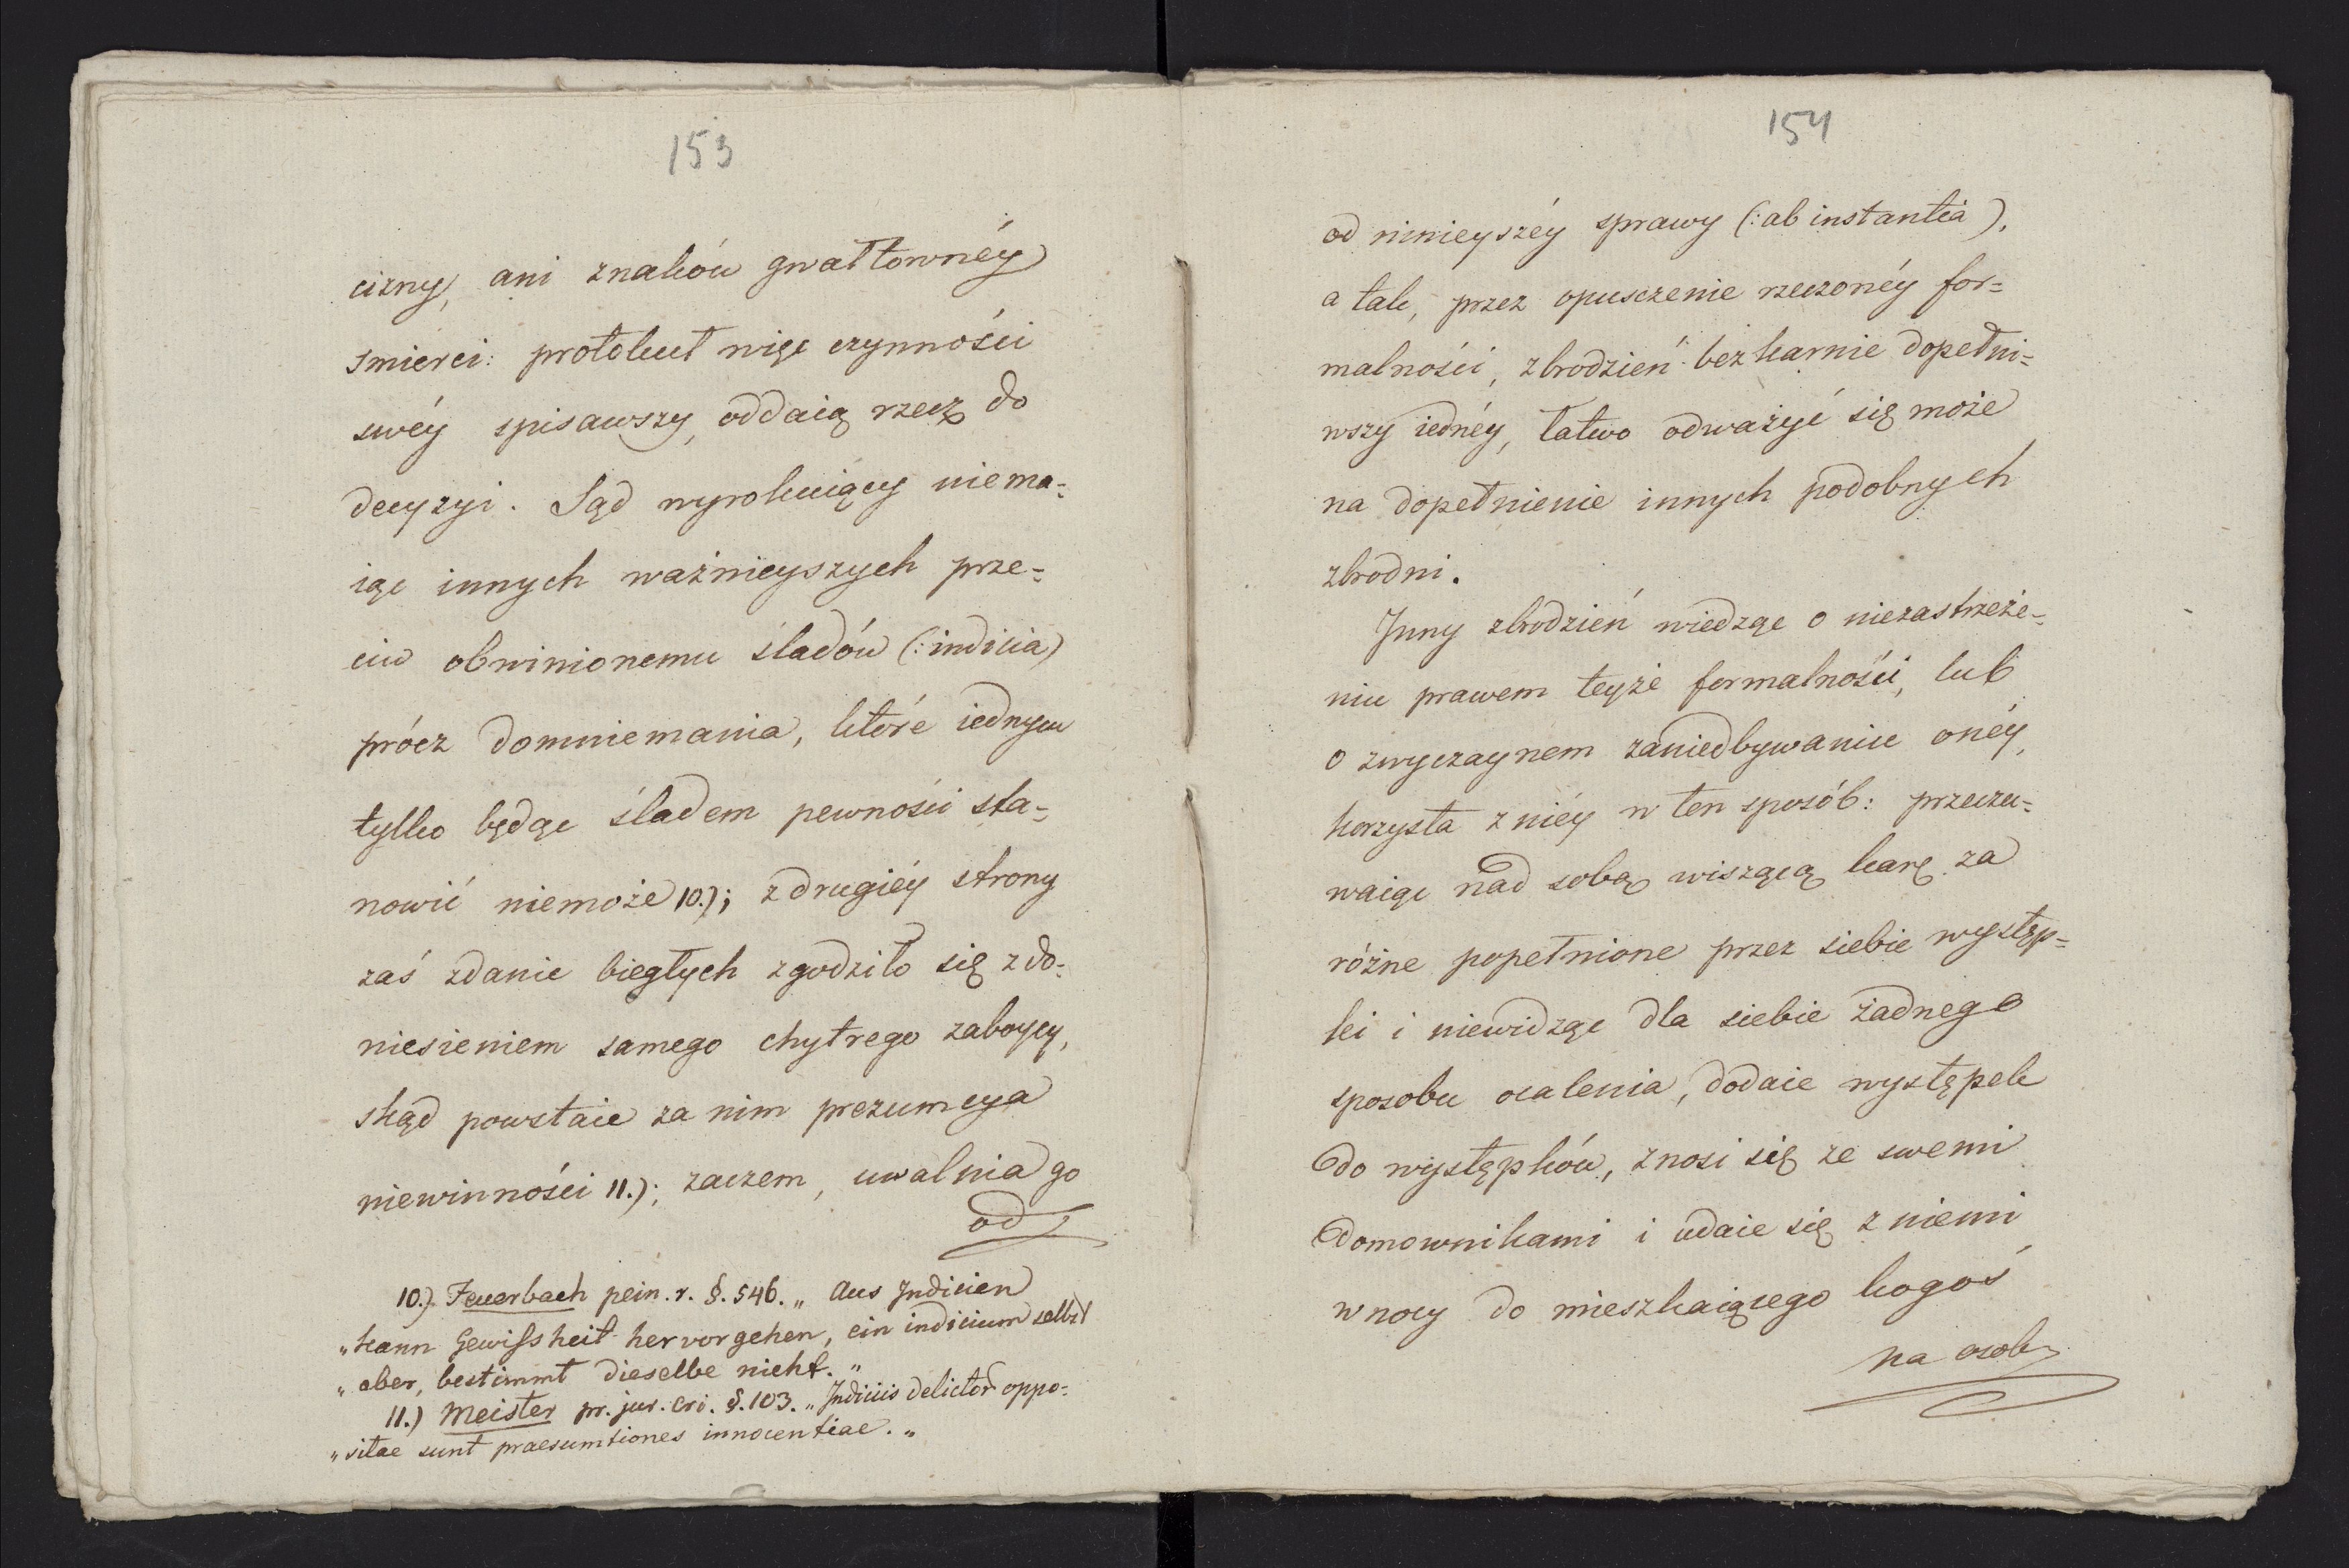 153
cizny, ani znaków gwałtownéy
smierci: protokuł więc czynności
swéy spisawszy, oddaią rzecz do
decyzyi. Sąd wyrokuiący niema=
iąc innych ważnieyszych prze=
ciw obwinionemu śladów (: indicia)
prócz domniemania, któré iednym
tylko będąc śladem pewności sta=
nowić niemoże 10.); z drugiéy strony
zaś zdanie biegłych zgodziło się z do=
niesieniem samego chytrego zabóycy,
skąd powstaie za nim prezumcya
niewinności 11.); zaczem, uwalnia go
od
10.) Feuerbach pein. r. §. 546. „ Aus Indicien
„kann Gewißheit hervorgehen, ein indicium selbst
„aber, bestimmt dieselbe nicht. „
11.) Meister pr. jur. cri. §. 103. „Indiciis delictor oppo=
„sitae sunt praesumtiones innocentiae. „
154
od ninieyszéy sprawy (: ab instantia),
a tak, przez opusczenie rzeczonéy for=
malności, zbrodzień bezkarnie dopełni=
wszy iednéy, łatwo odważyć się może
na dopełnienie innych podobnych
zbrodni.
Inny zbrodzień wiedząc o niezastrzeże=
niu prawem teyże formalności, lub
o zwyczaynem zaniedbywaniu onéy,
korzysta z niéy w ten sposób: przeczu=
waiąc nad sobą wiszącą karę za
różne popełnione przez siebie występ=
ki i niewidząc dla siebie żadnego
sposobu ocalenia, dodaie występek
do występków, znosi się ze swemi
domownikami i udaie się z niemi
w nocy do mieszkaiącego kogoś
na osob